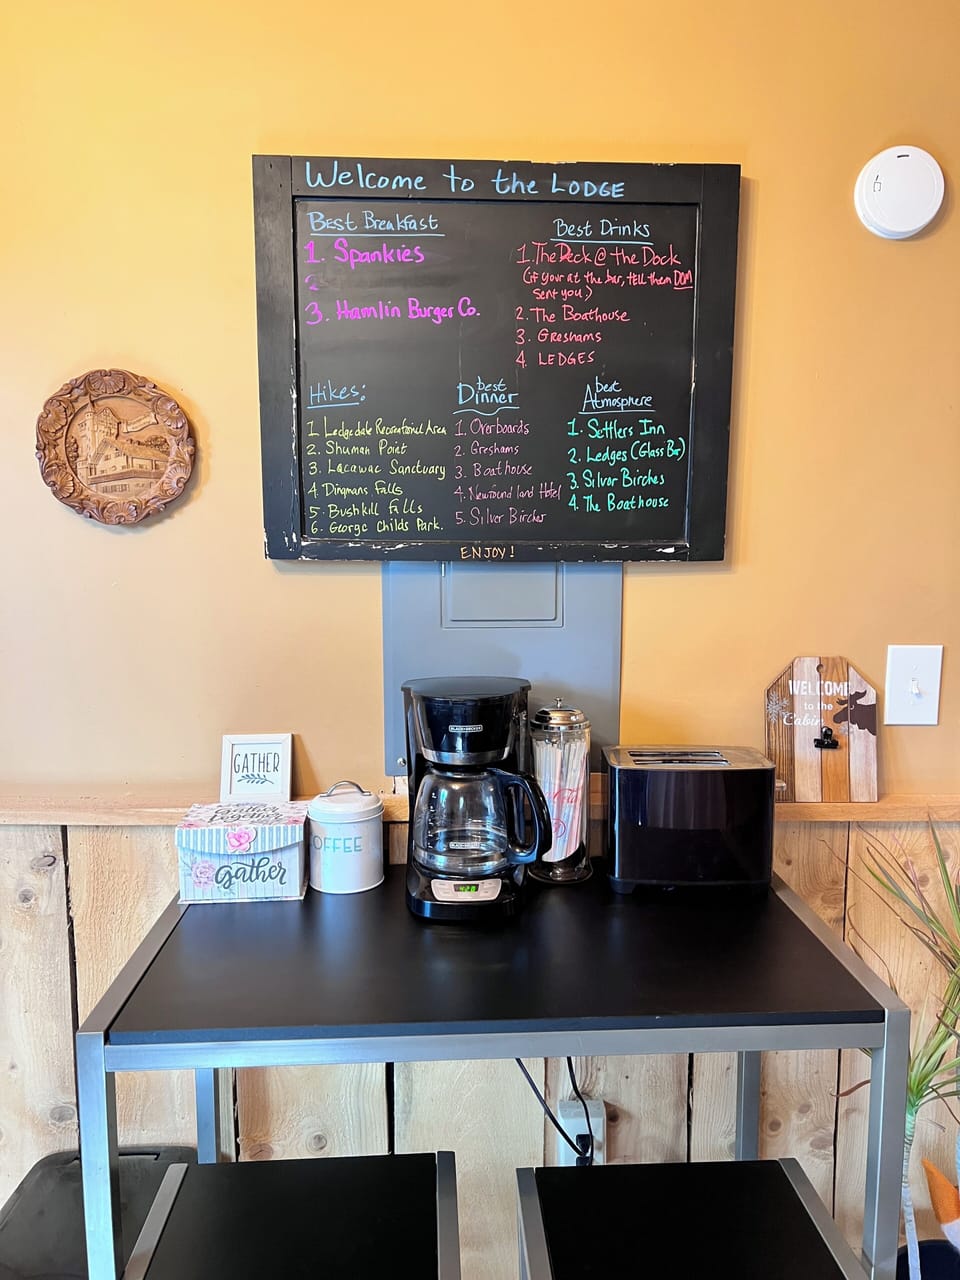 Welcome to the LODGE
Best Breakfast
1. Spankies
2.
3. Hamlin Burger Co.
Best Drinks
1. The Deck @ the Dock
(if your at the bar, tell them DOM
sent you.)
2. The Boathouse
3. Greshams
4. LEDGES
Hikes:
1. Ledgedale Recreational Area
2. Shuman Point
3. Lacawac Sanctuary
4. Dingmans Falls
5. Bushkill Falls
6. George Childs Park.
best
Dinner
1. Overboards
2. Greshams
3. Boathouse
4. Newfoundland Hotel
5. Silver Birches
best
Atmosphere
1. Settlers Inn
2. Ledges (Glass Bar)
3. Silver Birches
4. The Boathouse
ENJOY!
WELCOME
to the
Cabin
GATHER
Gather
together
gather
COFFEE
BLACK+DECKER
BLACK+DECKER
4:28